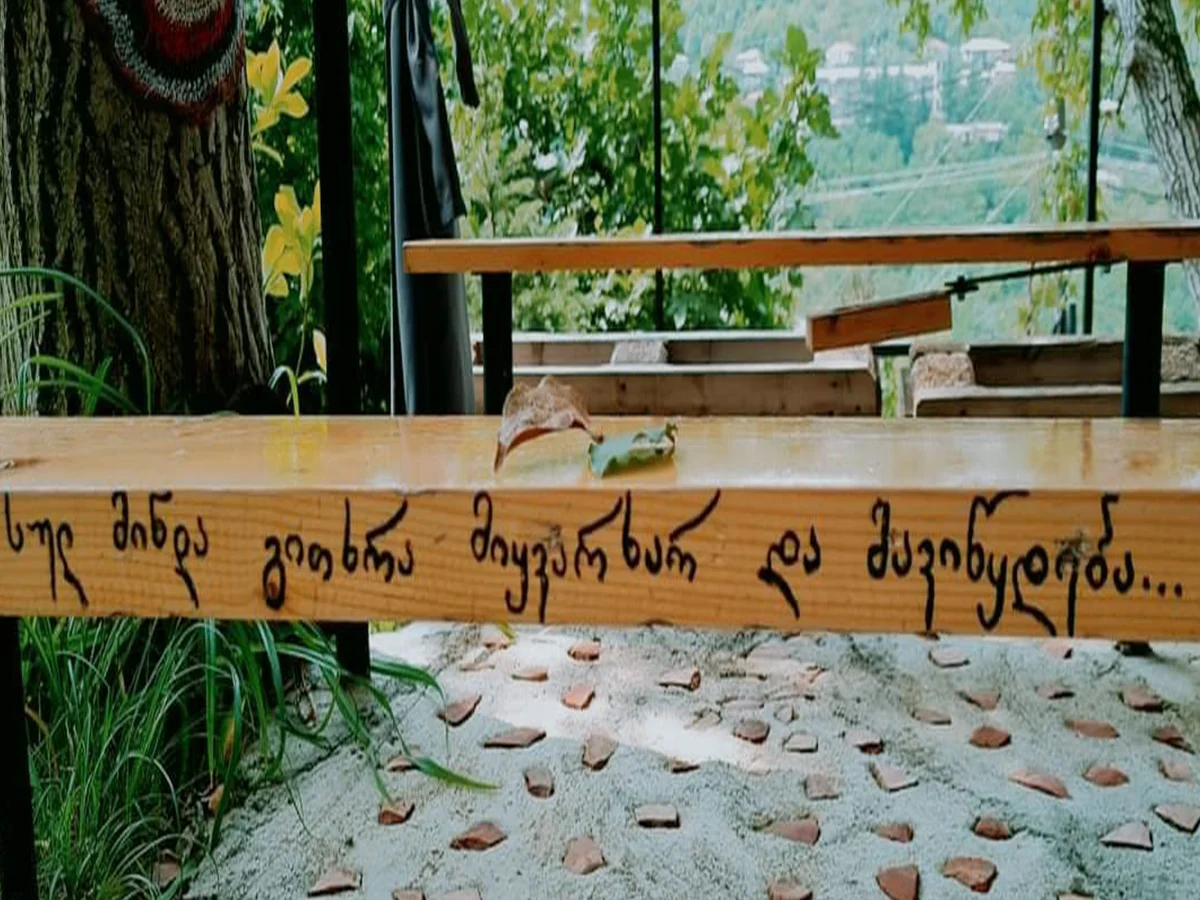 სულ მინდა გითხრა მიყვარხარ და მავიწყდება...